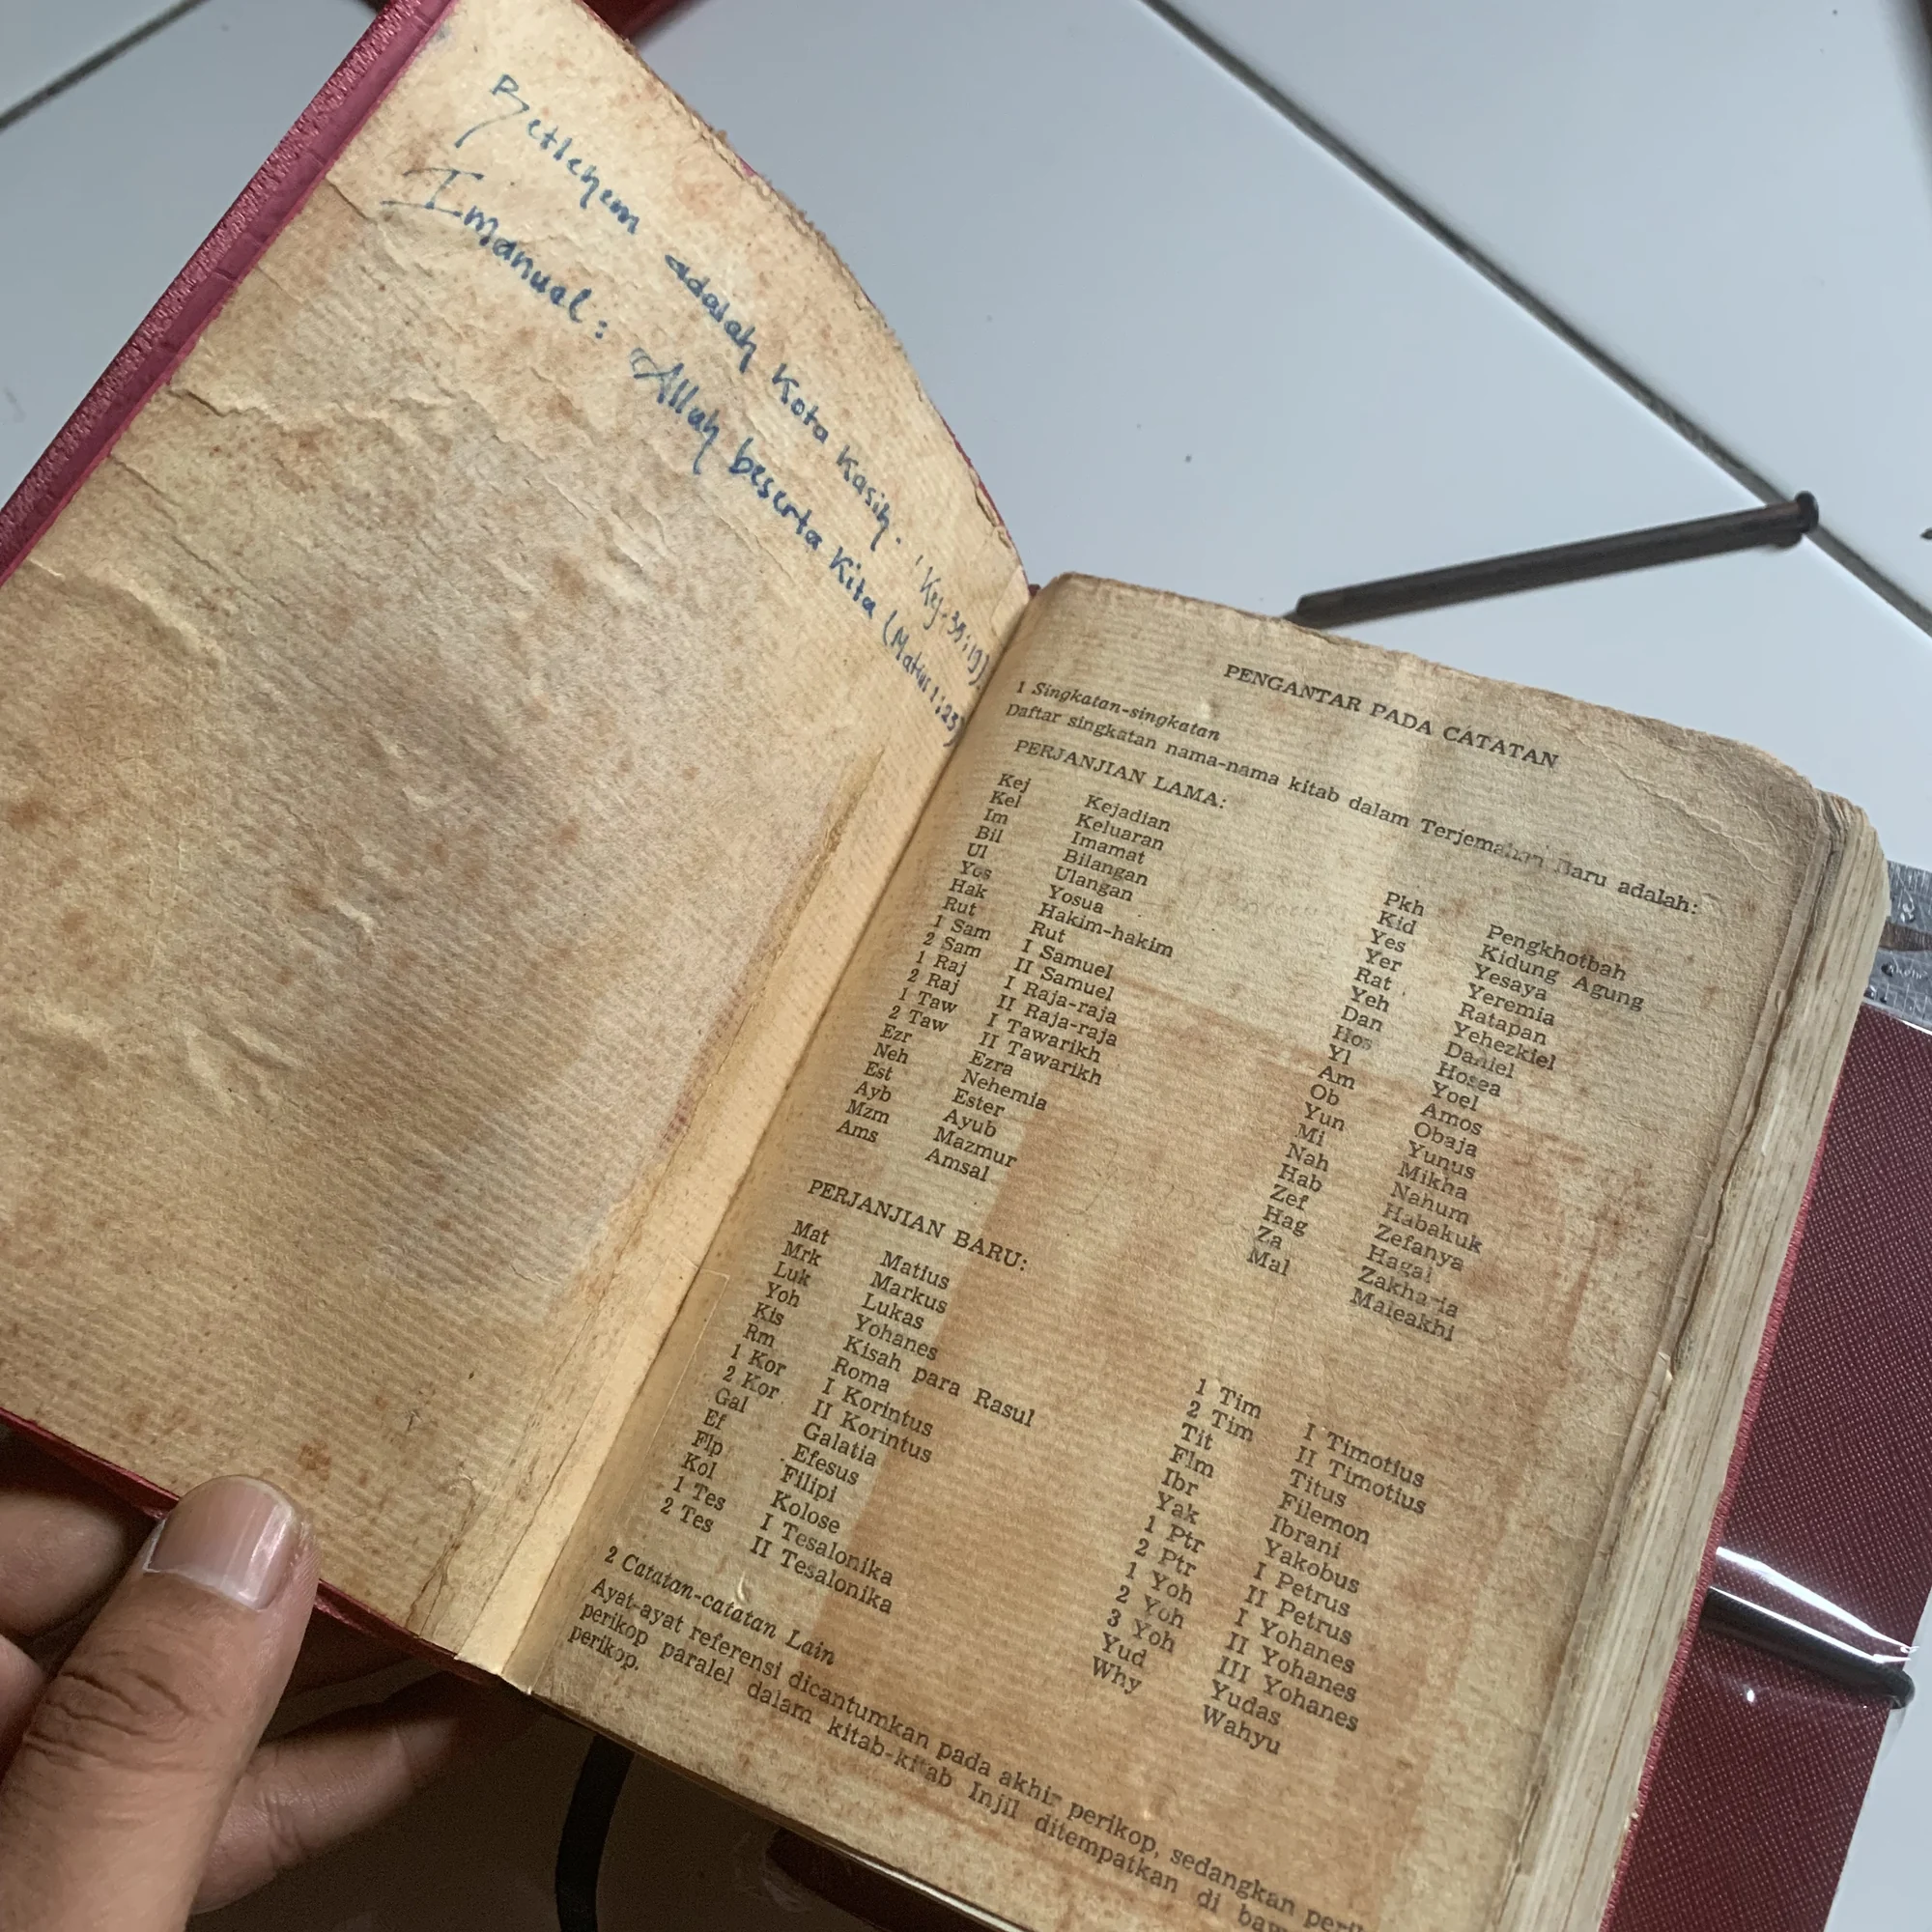 Betlehem adalah Kota Kasih. (Kej. 35:19).
Imanuel : Allah beserta Kita (Matius 1:23)
PENGANTAR PADA CATATAN
1 Singkatan-singkatan
Daftar singkatan nama-nama kitab dalam Terjemahan Baru adalah:
PERJANJIAN LAMA:
Kej Kejadian
Kel Keluaran
Im Imamat
Bil Bilangan
Ul Ulangan
Yos Yosua
Hak Hakim-hakim
Rut Rut
1 Sam I Samuel
2 Sam II Samuel
1 Raj I Raja-raja
2 Raj II Raja-raja
1 Taw I Tawarikh
2 Taw II Tawarikh
Ezr Ezra
Neh Nehemia
Est Ester
Ayb Ayub
Mzm Mazmur
Ams Amsal
Pkh Pengkhotbah
Kid Kidung Agung
Yes Yesaya
Yer Yeremia
Rat Ratapan
Yeh Yehezkiel
Dan Daniel
Hos Hosea
Yl Yoel
Am Amos
Ob Obaja
Yun Yunus
Mi Mikha
Nah Nahum
Hab Habakuk
Zef Zefanya
Hag Hagai
Za Zakharia
Mal Maleakhi
PERJANJIAN BARU:
Mat Matius
Mrk Markus
Luk Lukas
Yoh Yohanes
Kis Kisah para Rasul
Rm Roma
1 Kor I Korintus
2 Kor II Korintus
Gal Galatia
Ef Efesus
Flp Filipi
Kol Kolose
1 Tes I Tesalonika
2 Tes II Tesalonika
1 Tim I Timotius
2 Tim II Timotius
Tit Titus
Flm Filemon
Ibr Ibrani
Yak Yakobus
1 Ptr I Petrus
2 Ptr II Petrus
1 Yoh I Yohanes
2 Yoh II Yohanes
3 Yoh III Yohanes
Yud Yudas
Why Wahyu
2 Catatan-catatan Lain
Ayat-ayat referensi dicantumkan pada akhir perikop, sedangkan
perikop paralel dalam kitab-kitab Injil ditempatkan di
perikop.